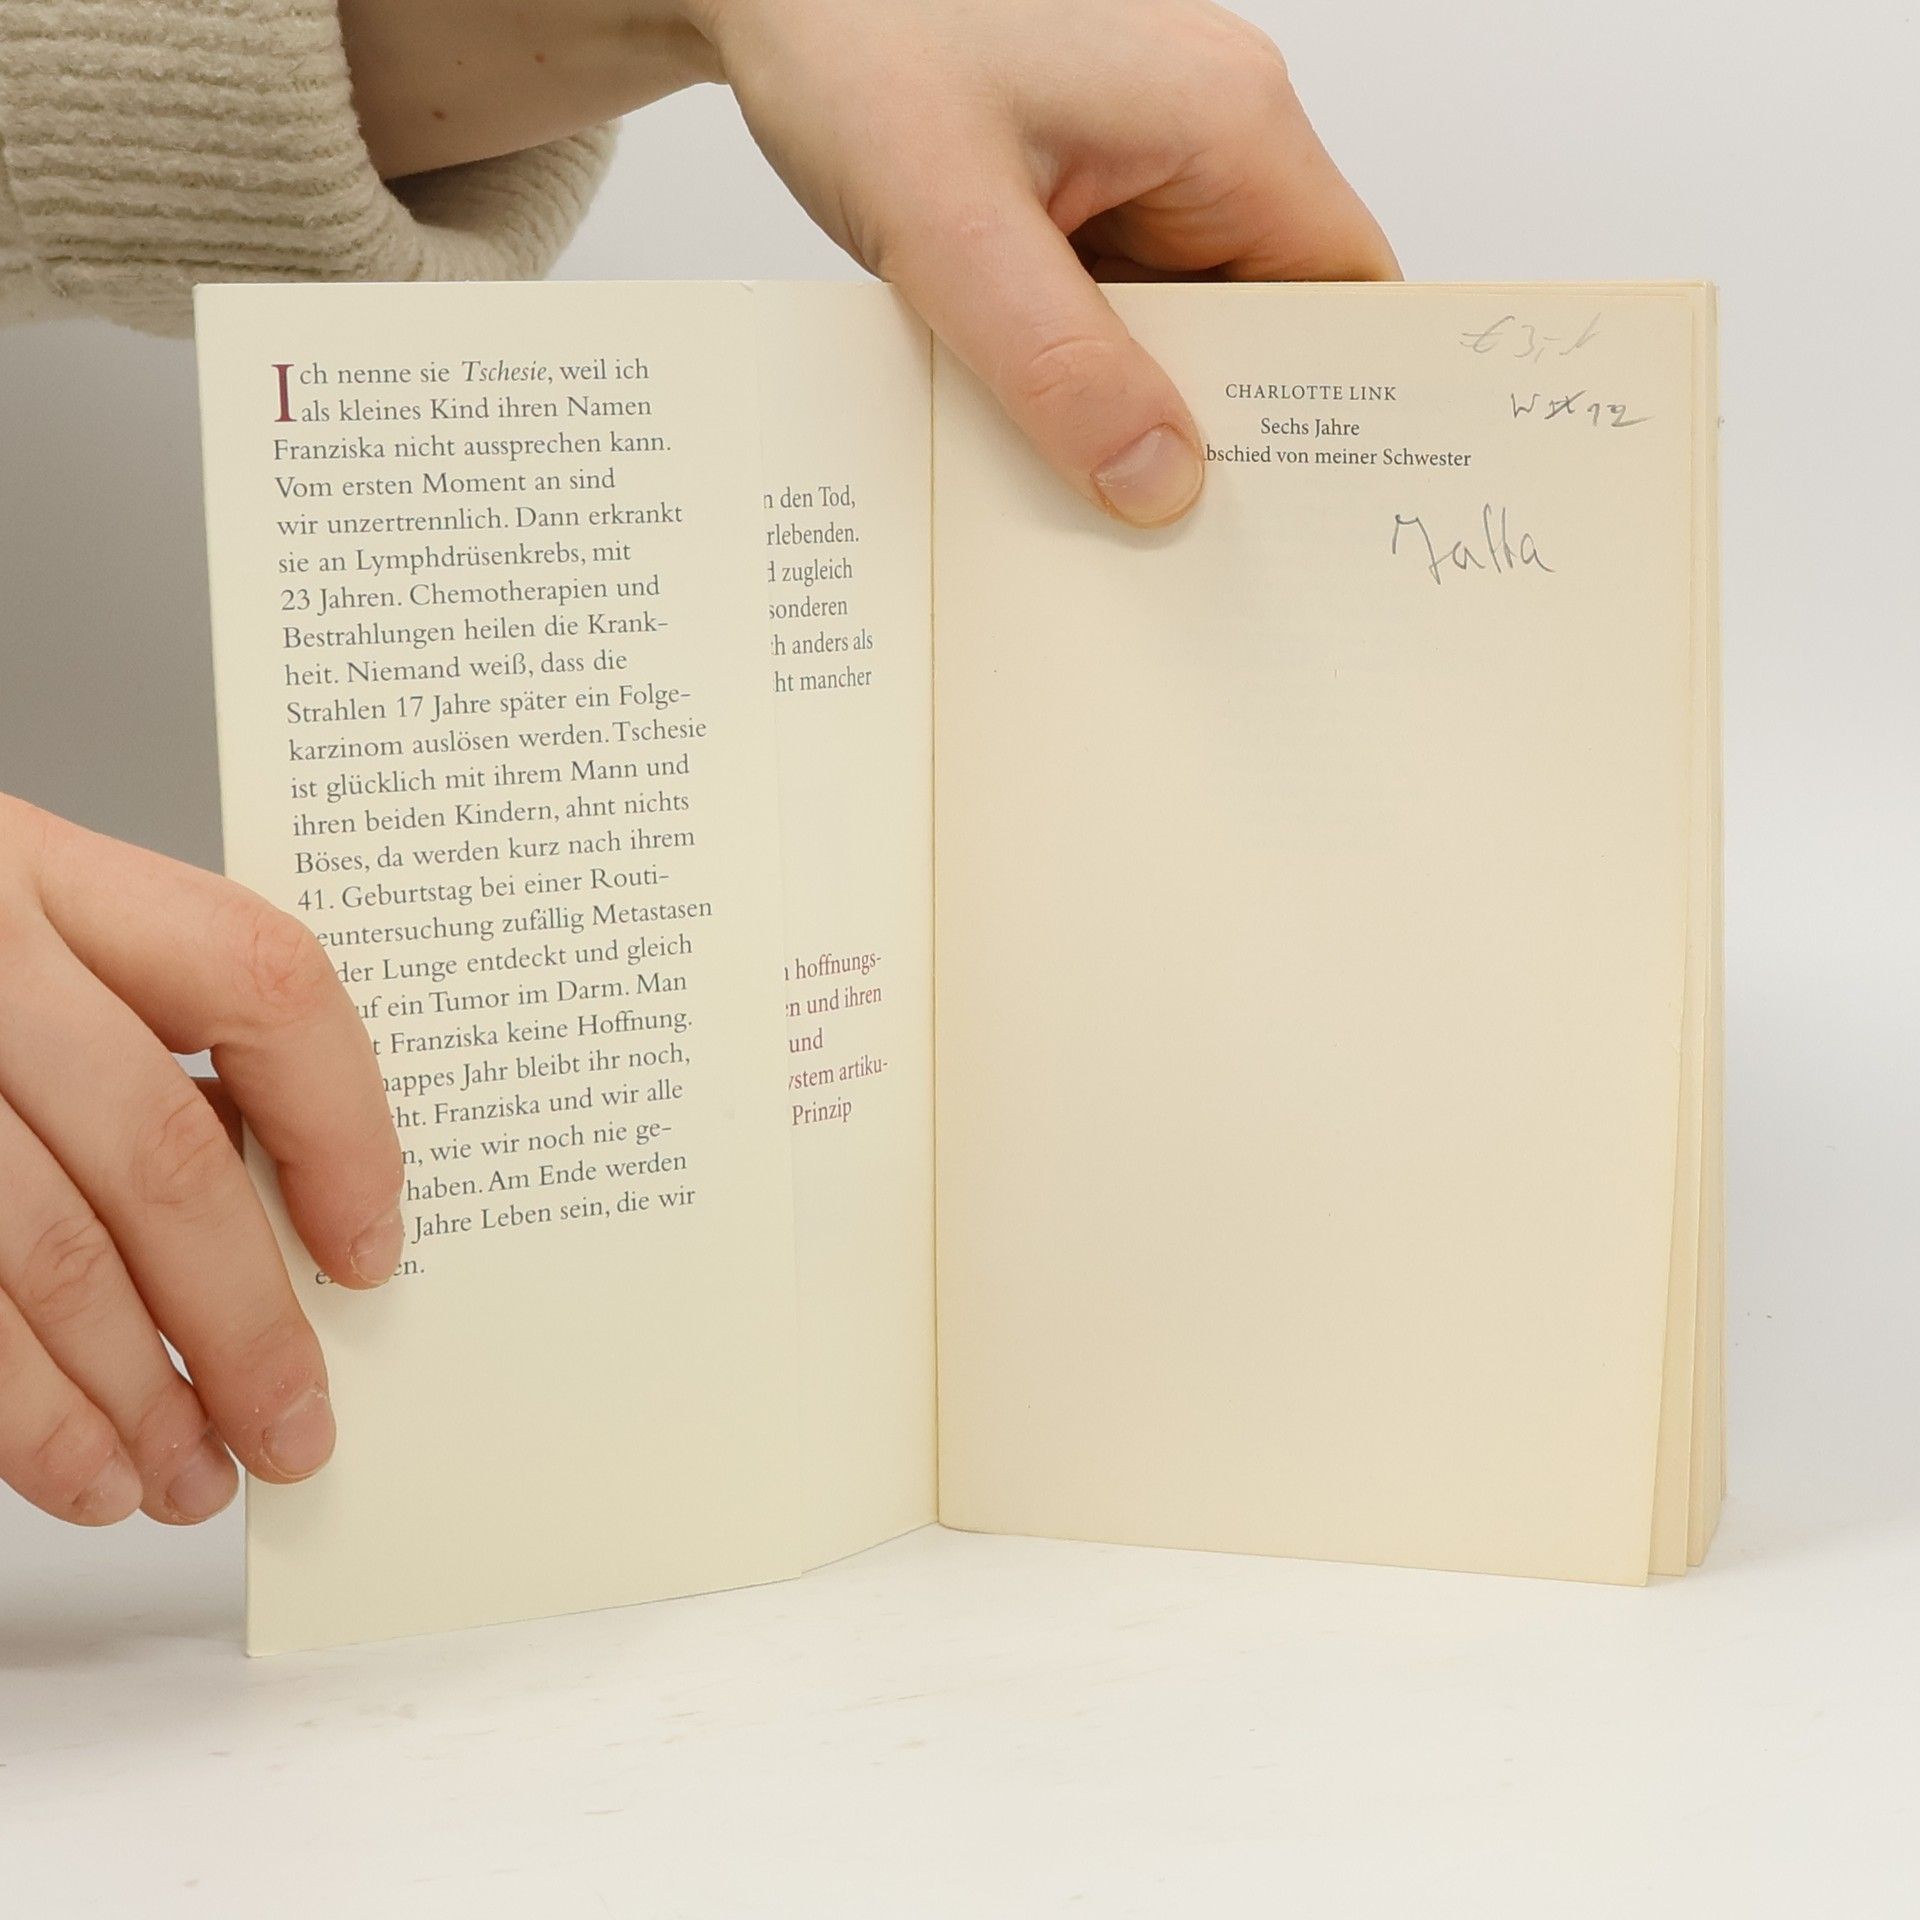 Ich nenne sie Tschesie, weil ich
als kleines Kind ihren Namen
Franziska nicht aussprechen kann.
Vom ersten Moment an sind
wir unzertrennlich. Dann erkrankt
sie an Lymphdrüsenkrebs, mit
23 Jahren. Chemotherapien und
Bestrahlungen heilen die Krank-
heit. Niemand weiß, dass die
Strahlen 17 Jahre später ein Folge-
karzinom auslösen werden. Tschesie
ist glücklich mit ihrem Mann und
ihren beiden Kindern, ahnt nichts
Böses, da werden kurz nach ihrem
41. Geburtstag bei einer Routi-
euntersuchung zufällig Metastasen
der Lunge entdeckt und gleich
uf ein Tumor im Darm. Man
t Franziska keine Hoffnung.
nappes Jahr bleibt ihr noch,
ht. Franziska und wir alle
n, wie wir noch nie ge-
haben. Am Ende werden
Jahre Leben sein, die wir
en.
n den Tod,
rlebenden.
d zugleich
sonderen
h anders als
ht mancher
n hoffnungs-
en und ihren
und
ystem artiku-
Prinzip
€ 3,-
CHARLOTTE LINK
W 12
Sechs Jahre
bschied von meiner Schwester